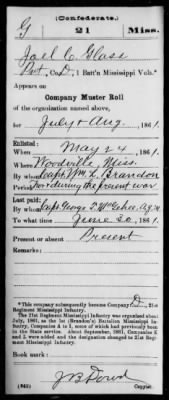 (Confederate.)
G 21 Miss.
Joel C. Glass
Pvt, Co. D, 1 Batt'n Mississippi Vols.*
Appears on
Company Muster Roll
of the organization named above,
for July & Aug, 1861.
Enlisted:
When May 24, 1861.
Where Woodville, Miss.
By whom Capt. Wm L. Brandon
Period For & during the present war
Last paid:
By whom Capt. George T. McGehee
To what time June 30, 1861.
Present or absent Present
Remarks:
*This company subsequently became Company D, 21st
Regiment Mississippi Infantry.
The 21st Regiment Mississippi Infantry was organized about
July, 1861, as the 1st (Brandon's) Battalion Mississippi In-
fantry, Companies A to I, some of which had previously been
in the State service. About September, 1861, Companies K
and L were added and the designation changed to 21st Regi-
ment Mississippi Infantry.
Book mark:
(642)
J B Dowd
Copyist.